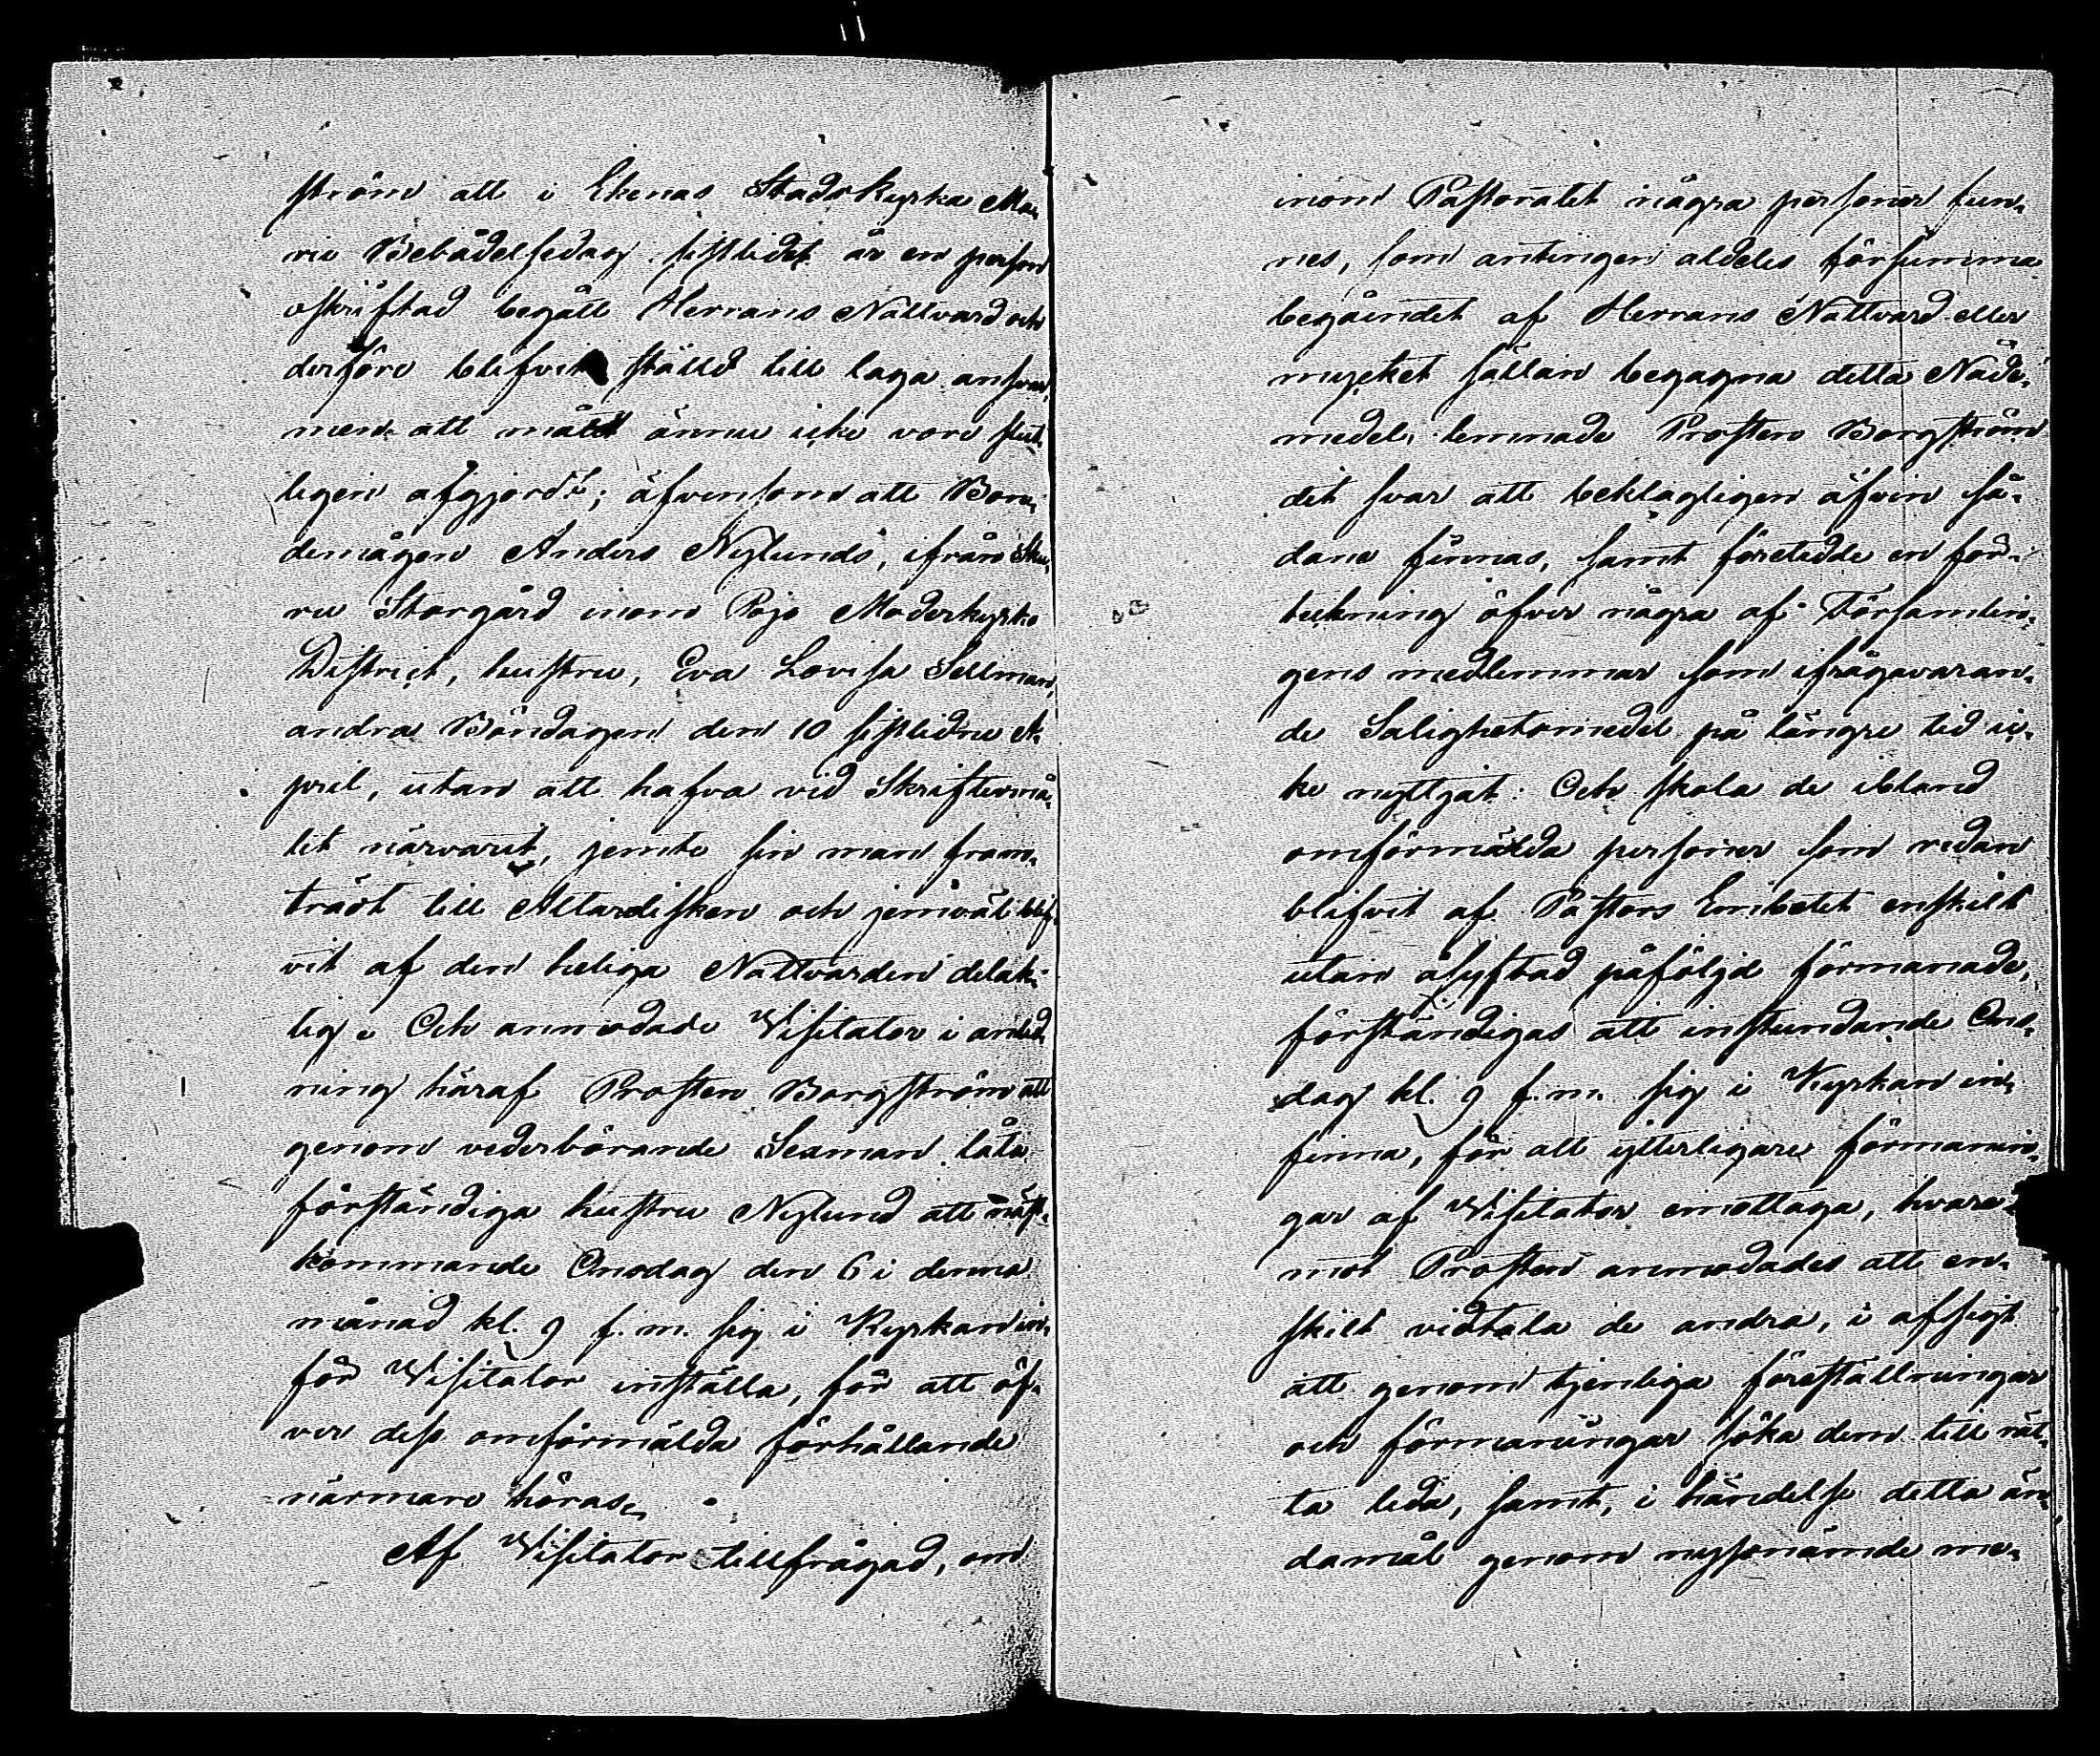 ström att i Ekenäs Stads Kyrka Ma-
riæ Bebådelsedag sistlidet år en person
oskriftad begått Herrans Nattvard och
derföre blifvit ställd till laga answar,
men att målet ännu icke vore slut-
ligen afgjordt; äfvensom att Bon-
demågen Anders Nylunds, ifrån Sku-
ru Storgård inom Pojo Moderkyrko
District, hustru, Eva Lovisa Sellman,
andra Böndagen den 10 sistlidne A-
pril, utan att hafva vid Skriftermå-
let närvarit, jemte sin man fram-
trädt till Altardisken och jemväl blif-
vit af den heliga Nattvarden delak-
tig. Och anmodade Visitator i anled-
ning häraf Prosten Borgström att
genom vederbörande Sexman låta
förständiga hustru Nylund att näst-
kommande Onsdag den 6 i denna
månad kl. 9 f. m. sig i Kyrkan in-
för Visitator inställa, för att öf-
ver dess omförmälda förhållande
närmare höras.
Af Visitator tillfrågad, om
inom Pastoratet några personer fun-
nes, som antingen aldeles försumma
begåendet af Herrans Nattvard eller
mycket sällan begagna detta Nåde-
medel, lemnade Prosten Borgström
det svar att beklagligen äfven så-
dane finnas, samt företedde en för-
teckning öfver några af Församlin-
gens medlemmar som ifrågavaran-
de Salighetsmedel på längre tid ic-
ke nyttjat. Och skola de ibland
omförmälda personer som redan
blifvit af Pastors Embetet enskilt
utan åsyftad påföljd förmanade,
förständigas att instundande Ons-
dag kl. 9 f. m. sig i Kyrkan in-
finna, för att ytterligare förmanin-
gar af Visitator emottaga, hvare-
mot Prosten anmodades att en-
skilt vidtala de andra, i afsigt
att genom tjenliga föreställningar
och förmaningar söka dem till rät-
ta leda, samt, i händelse detta än-
damål genom nyssnämde me-